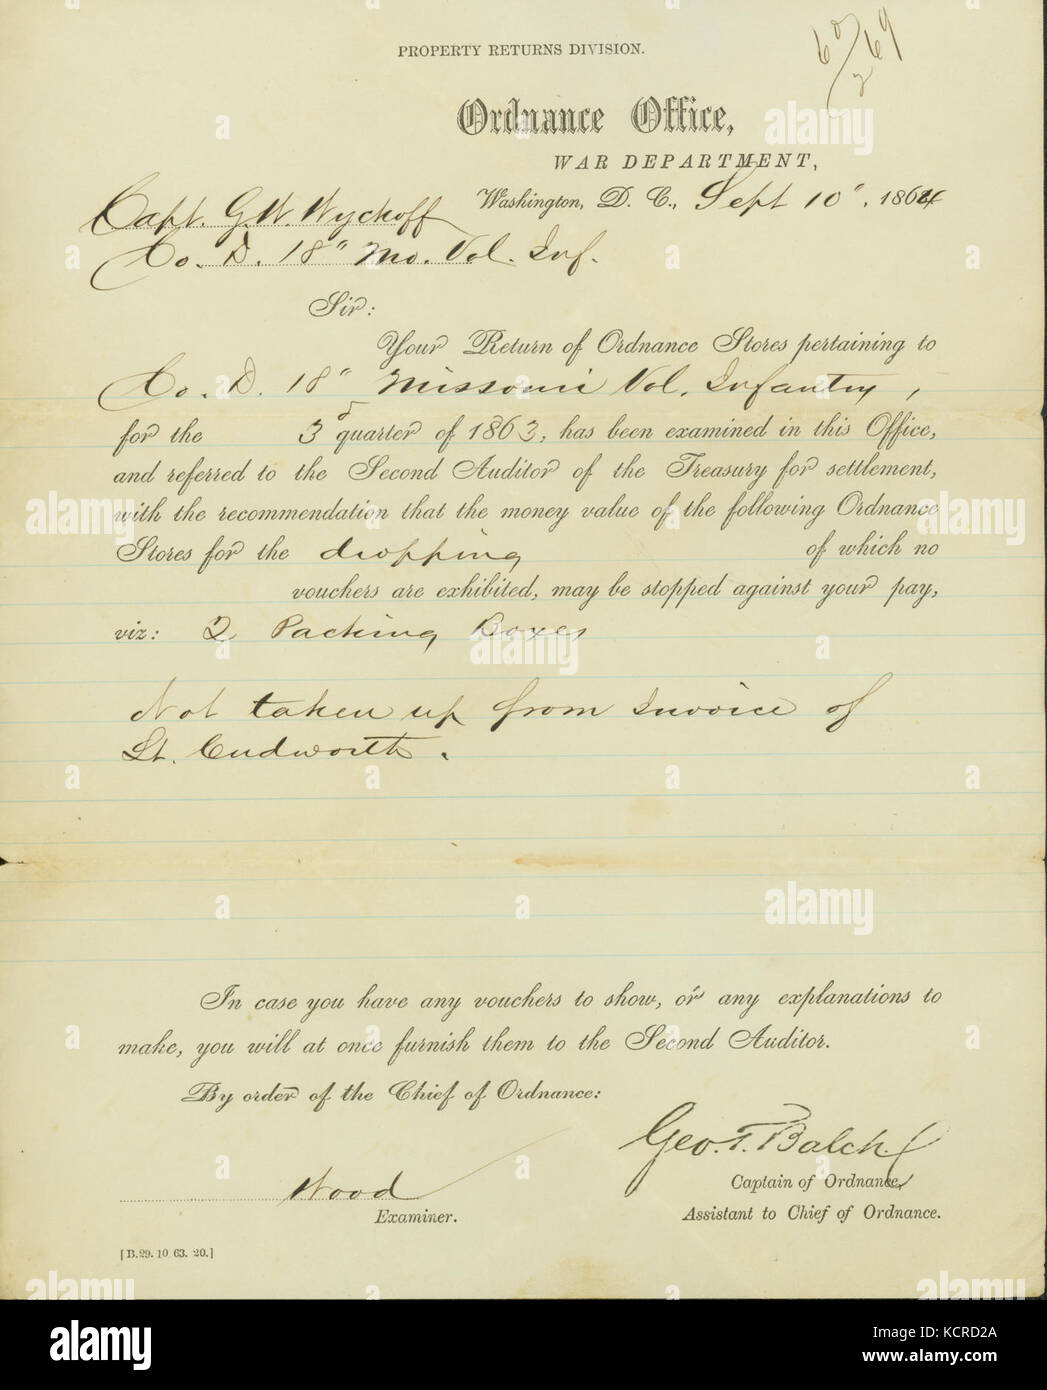 PROPERTY RETURNS DIVISION.
60/269
Ordnance Office,
WAR DEPARTMENT,
Washington, D. C., Sept 10", 1864
Capt. G.W. Wyckoff
Co. D. 18" Mo. Vol. Inf.
Sir:
Your Return of Ordnance Stores pertaining to
Co. D. 18" Missouri Vol. Infantry,
for the 3d quarter of 1863, has been examined in this Office,
and referred to the Second Auditor of the Treasury for settlement,
with the recommendation that the money value of the following Ordnance
Stores for the dropping of which no
vouchers are exhibited, may be stopped against your pay,
viz: 2 Packing Boxes
Not taken up from Invoice of
Lt. Cudworth.
In case you have any vouchers to show, or any explanations to
make, you will at once furnish them to the Second Auditor.
By order of the Chief of Ordnance:
Geo. T. Balch
Captain of Ordnance,
Wood
Assistant to Chief of Ordnance.
Examiner.
[B.29. 10. 63. 20.]
alamy
Image ID: KCRD2A
www.alamy.com